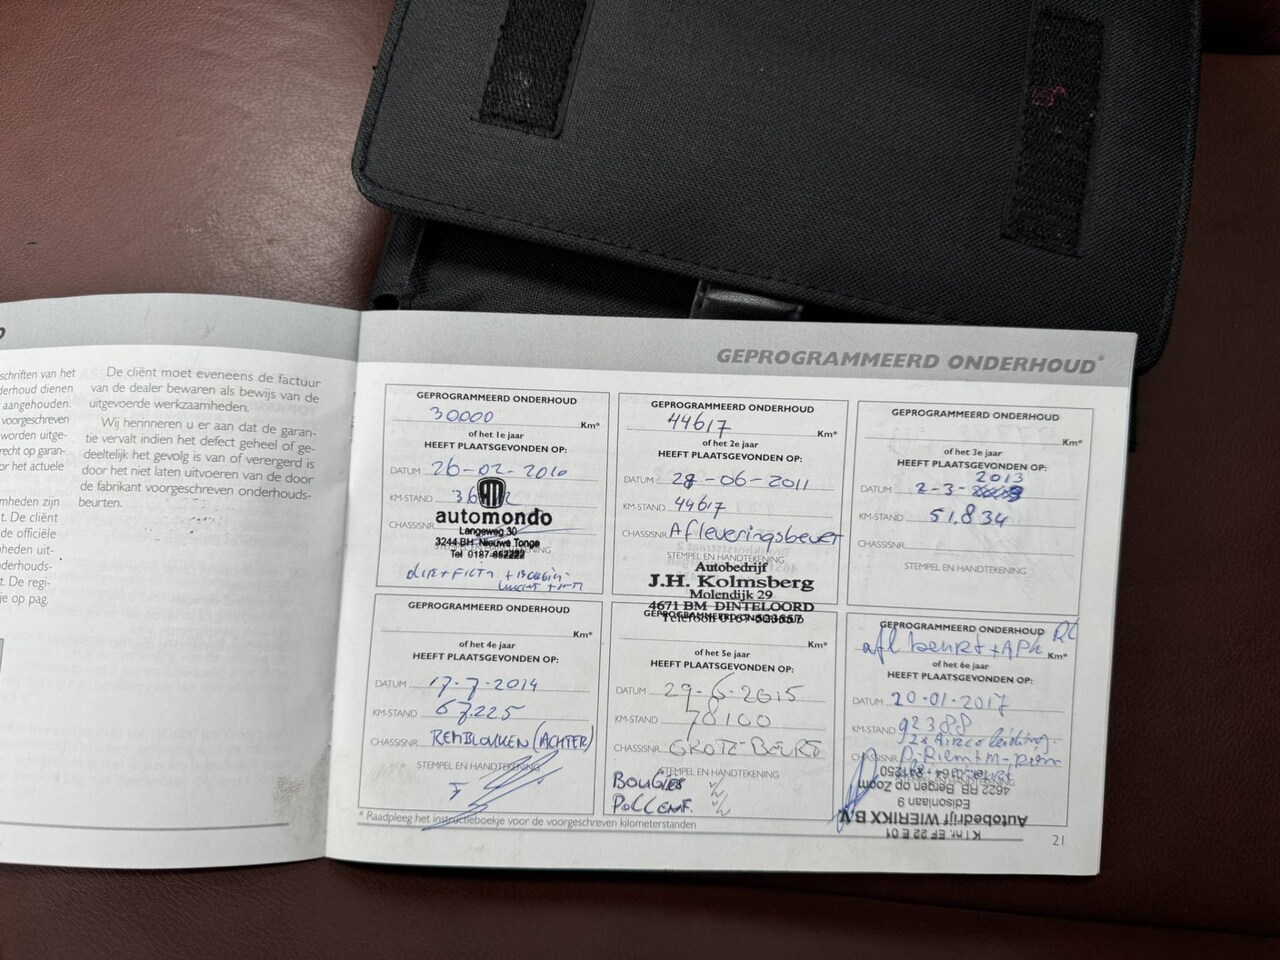 schriften van het
derhoud dienen
aangehouden.
voorgeschreven
worden uitge-
recht op garan-
or het actuele
mheden zijn
t. De cliënt
de officiële
heden uit-
derhouds-
t. De regi-
je op pag.
De cliënt moet eveneens de factuur
van de dealer bewaren als bewijs van de
uitgevoerde werkzaamheden.
Wij herinneren u er aan dat de garan-
tie vervalt indien het defect geheel of ge-
deeltelijk het gevolg is van of verergerd is
door het niet laten uitvoeren van de door
de fabrikant voorgeschreven onderhouds-
beurten.
GEPROGRAMMEERD ONDERHOUD*
GEPROGRAMMEERD ONDERHOUD
30000 Km*
of het 1e jaar
HEEFT PLAATSGEVONDEN OP:
DATUM 26-02-2010
KM-STAND
CHASSISNR.
automondo
Langeweg 30
3244 BH Nieuwe Tonge
Tel 0187-
GEPROGRAMMEERD ONDERHOUD
44617 Km*
of het 2e jaar
HEEFT PLAATSGEVONDEN OP:
DATUM 28-06-2011
KM-STAND 44617
CHASSISNR. Afleveringsbeurt
STEMPEL EN HANDTEKENING
Autobedrijf
J.H. Kolmsberg
Molendijk 29
4671 BM DINTELOORD
GEPROGRAMMEERD ONDERHOUD
Km*
of het 3e jaar
HEEFT PLAATSGEVONDEN OP:
2013
DATUM 2-3-
KM-STAND 51,834
CHASSISNR.
STEMPEL EN HANDTEKENING
GEPROGRAMMEERD ONDERHOUD
Km*
of het 4e jaar
HEEFT PLAATSGEVONDEN OP:
DATUM 17-7-2014
KM-STAND 67.225
CHASSISNR. REMBLOKKEN (ACHTER)
STEMPEL EN HANDTEKENING
GEPROGRAMMEERD ONDERHOUD
Km*
of het 5e jaar
HEEFT PLAATSGEVONDEN OP:
DATUM 29-6-2015
KM-STAND 78100
CHASSISNR. GROTE-BEURT
STEMPEL EN HANDTEKENING
BOUGIES
POLLENF.
GEPROGRAMMEERD ONDERHOUD
afl beurt + APK Km*
of het 6e jaar
HEEFT PLAATSGEVONDEN OP:
DATUM 20-01-2017
KM-STAND 92388
2x Airco leiding.
CHASSISNR.
Autobedrijf WIERIKX B.V.
Edisonlaan 9
4622 RB Bergen op Zoom
* Raadpleeg het instructieboekje voor de voorgeschreven kilometerstanden
21